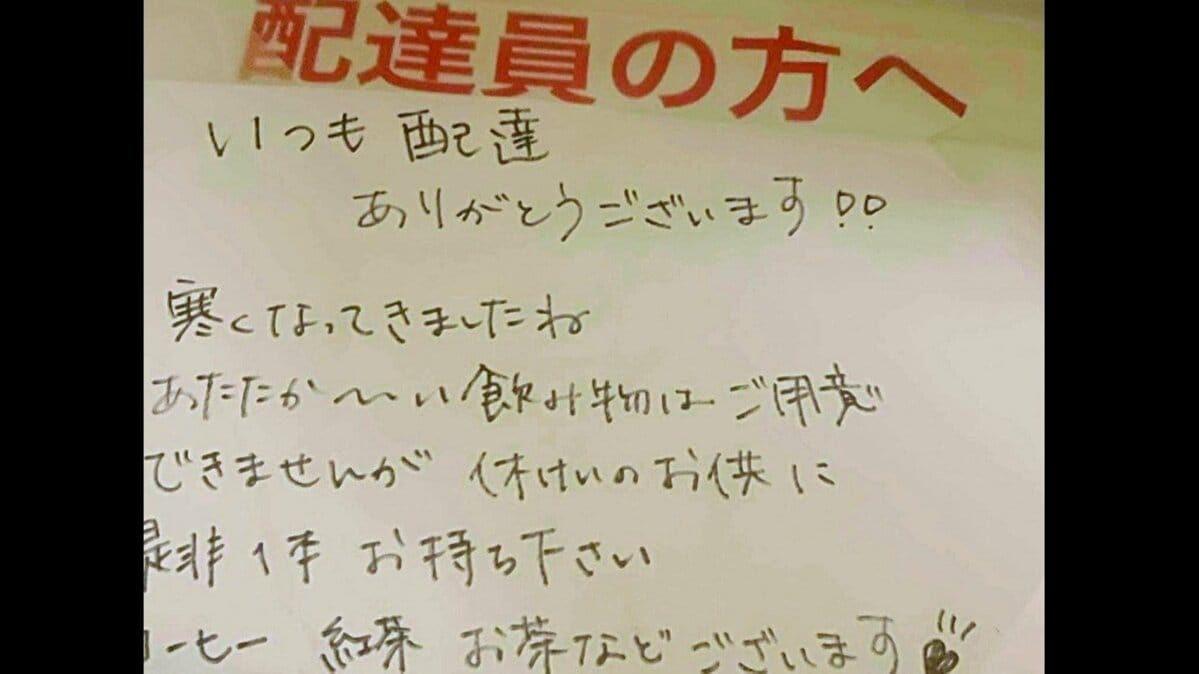 配達員の方へ
いつも配達
ありがとうございます!!
寒くなってきましたね
あたたか〜い飲み物はご用意
できませんが 休けいのお供に
是非1本 お持ち下さい
コーヒー 紅茶 お茶などございます